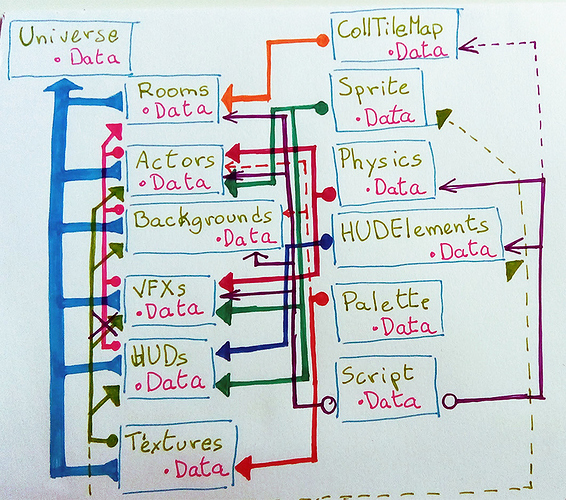 Universe
• Data
Rooms
• Data
Actors
• Data
Backgrounds
• Data
VFXs
• Data
HUDs
• Data
Téxtures
• Data
CollTileMap
• Data
Sprite
• Data
Physics
• Data
HUDElements
• Data
Palette
• Data
Script
• Data